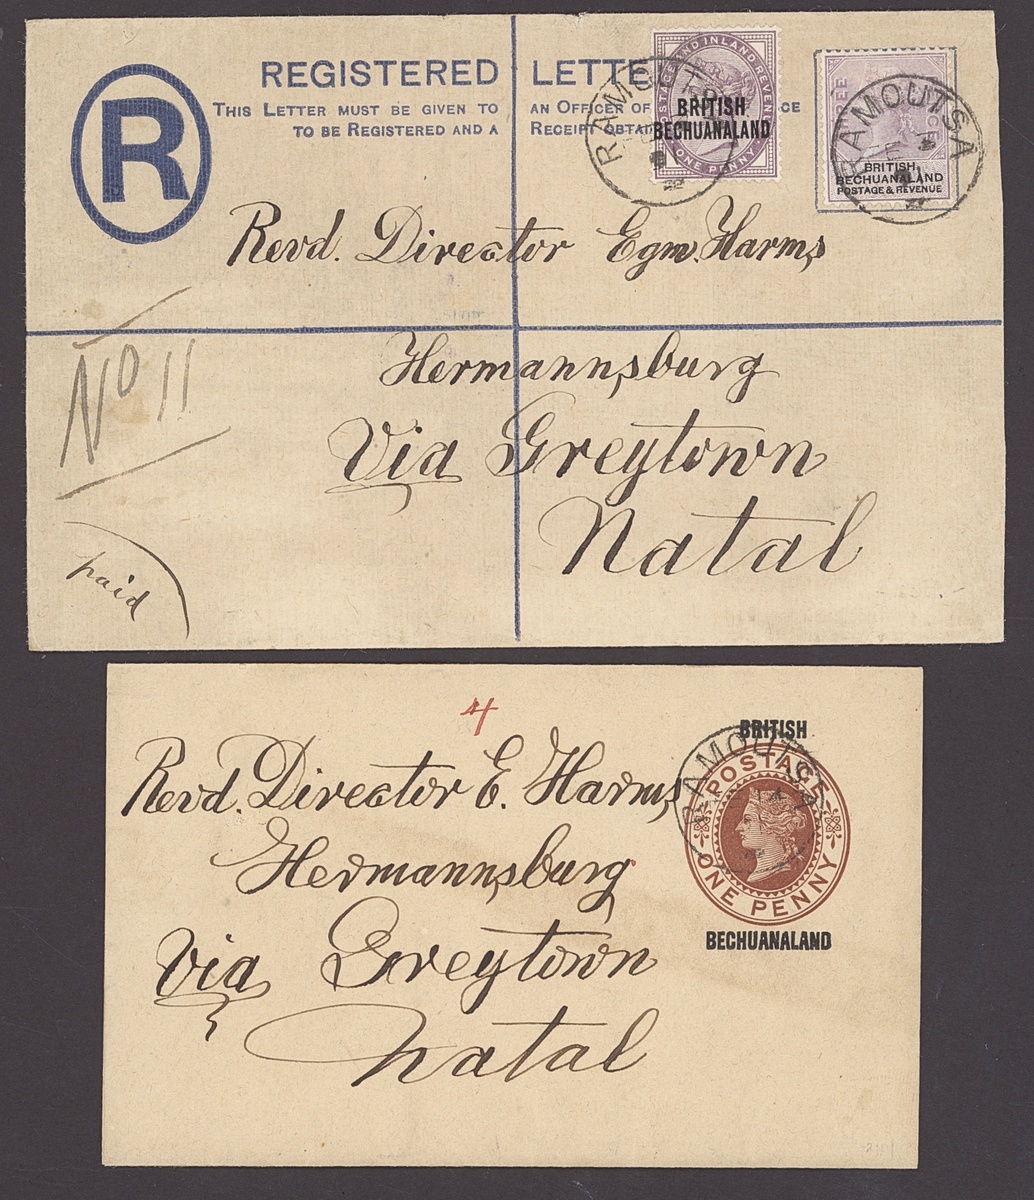 REGISTERED LETTE
THIS LETTER MUST BE GIVEN TO AN OFFICER OF CE
TO BE REGISTERED AND A RECEIPT OBTAI
R
POSTAGE AND INLAND REVENUE
BRITISH
BECHUANALAND
ONE PENNY
RAMOUTSA
BRITISH
BECHUANALAND
POSTAGE & REVENUE
RAMOUTSA
Revd. Director Egm. Harms
Hermannsburg
Via Greytown
Natal
No 11
paid
4
BRITISH
POSTAGE
ONE PENNY
BECHUANALAND
RAMOUTSA
Revd. Director E. Harms
Hermannsburg
Via Greytown
Natal